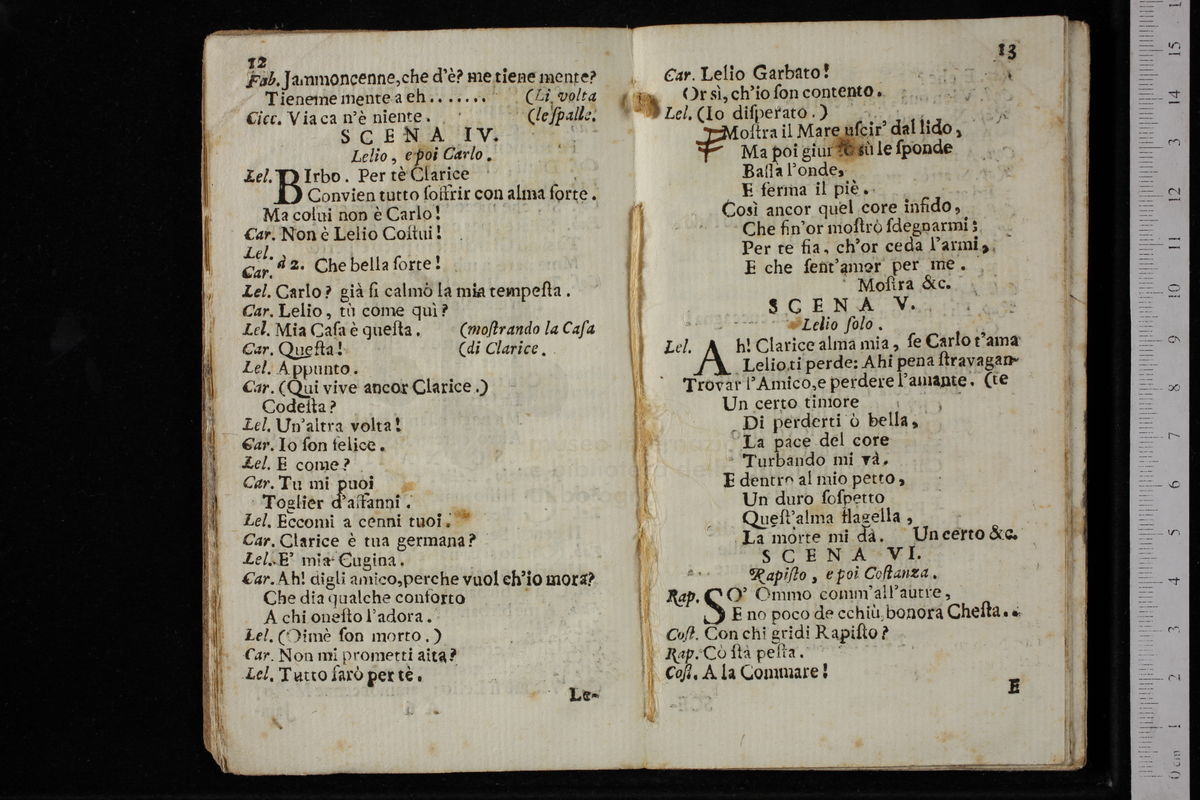 12
Fab. Jammoncenne, che d'è? me tiene mente?
Tieneme mente a eh ....... (Li volta
Cicc. Via ca n'è niente. (le ſpalle.
SCENA IV.
Lelio, e poi Carlo.
Lel. BIrbo. Per tè Clarice
Convien tutto ſoffrir con alma forte.
Ma colui non è Carlo!
Car. Non è Lelio Coſtui!
Lel.
Car. à 2. Che bella ſorte!
Lel. Carlo? già ſi calmò la mia tempeſta.
Car. Lelio, tù come quì?
Lel. Mia Caſa è queſta. (moſtrando la Caſa
Car. Queſta! (di Clarice.
Lel. Appunto.
Car. (Qui vive ancor Clarice.)
Codeſta?
Lel. Un'altra volta!
Car. Io ſon felice.
Lel. E come?
Car. Tu mi puoi
Toglier d'affanni.
Lel. Eccomi a cenni tuoi.
Car. Clarice è tua germana?
Lel. E' mia Cugina.
Car. Ah! digli amico, perche vuol ch'io mora?
Che dia qualche conforto
A chi oneſto l'adora.
Lel. (Oimè ſon morto.)
Car. Non mi prometti aita?
Lel. Tutto farò per tè.
Le-
13
Car. Lelio Garbato!
Or sì, ch'io ſon contento.
Lel. (Io diſperato.)
Moſtra il Mare uſcir' dal lido,
Ma poi sù le ſponde
Baſſa l'onde,
E ferma il piè.
Così ancor quel core infido,
Che fin'or moſtrò ſdegnarmi;
Per te fia, ch'or ceda l'armi,
E che ſent'amor per me.
Moſtra &c.
SCENA V.
Lelio ſolo.
Lel. Ah! Clarice alma mia, ſe Carlo t'ama
Lelio ti perde: Ahi pena ſtravagan-
Trovar l'Amico, e perdere l'amante. (te
Un certo timore
Di perderti ò bella,
La pace del core
Turbando mi và.
E dentro al mio petto,
Un duro ſoſpetto
Queſt'alma flagella,
La morte mi dà. Un certo &c.
SCENA VI.
Rapiſto, e poi Coſtanza.
Rap. SO' Ommo comm'all'autre,
E no poco de cchiù, bonora Cheſta..
Coſt. Con chi gridi Rapiſto?
Rap. Cò ſtà peſta.
Coſt. A la Commare!
E